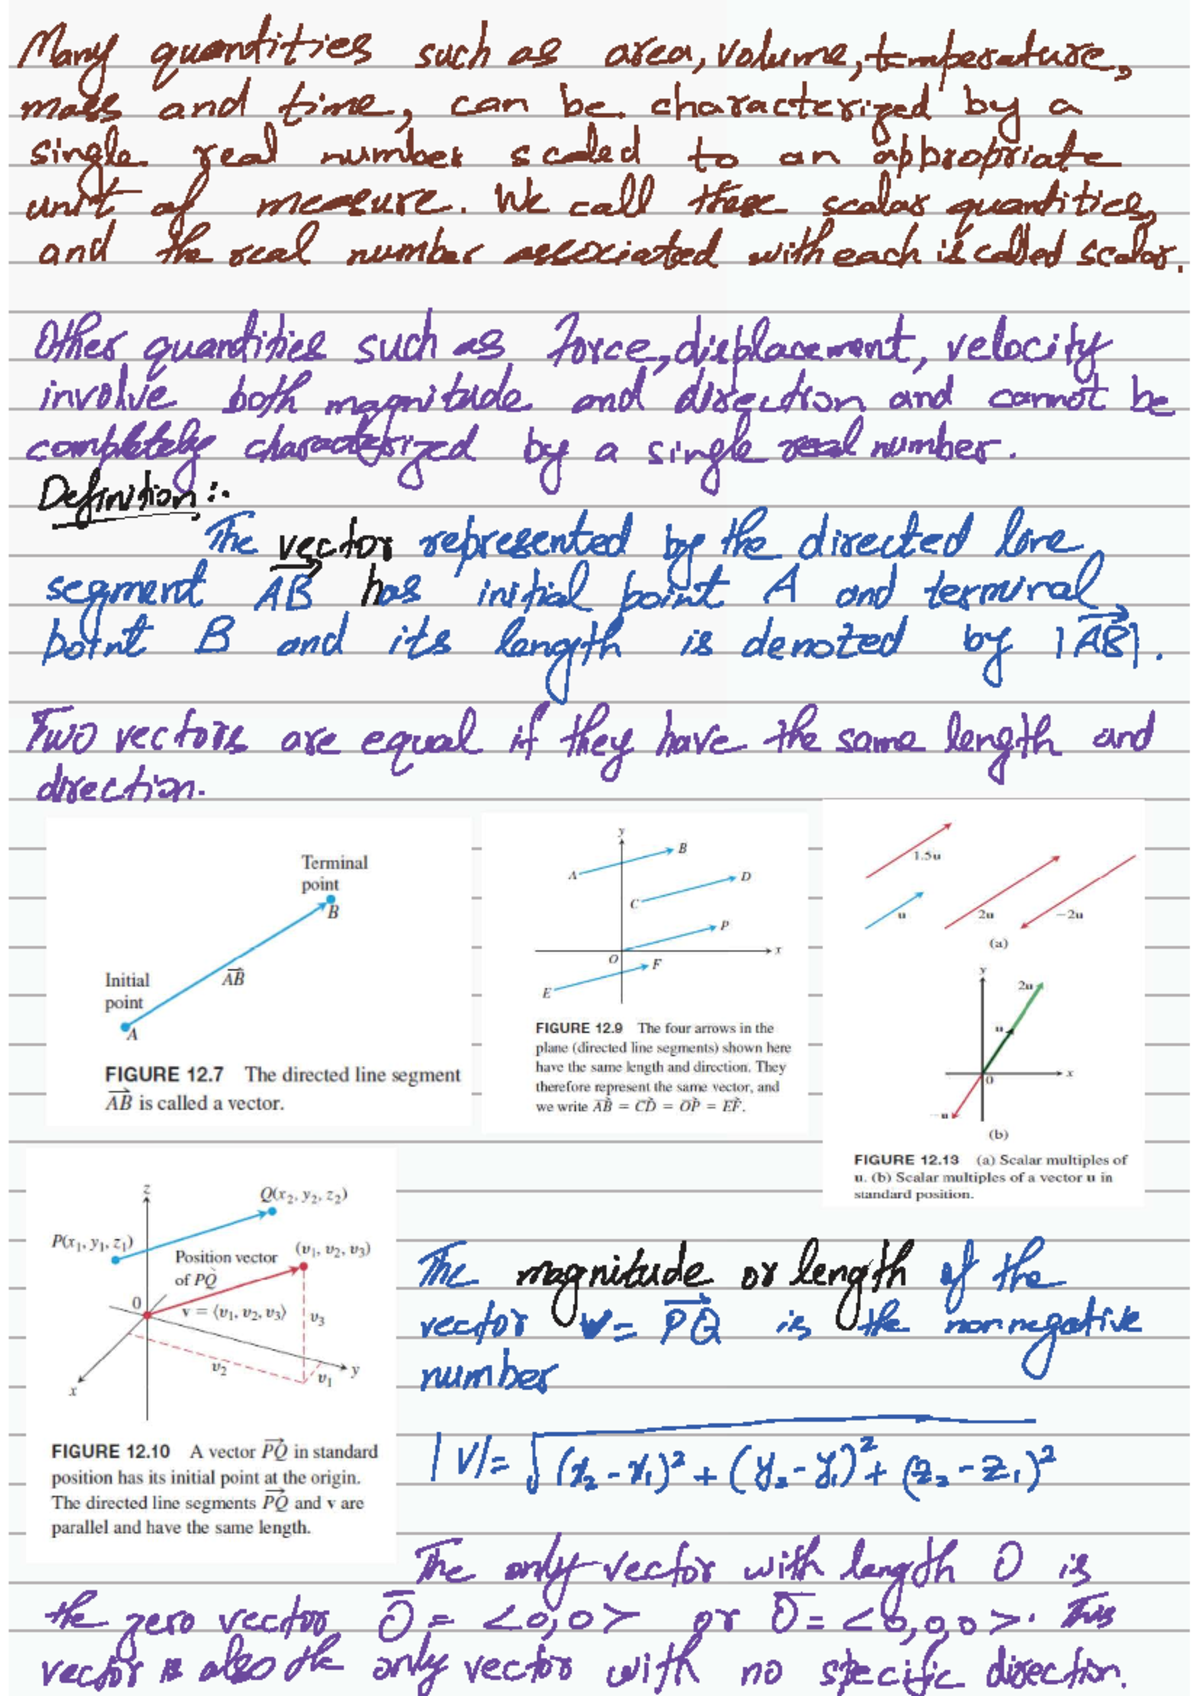 Many quantities such as area, volume, temperature,
mass and time, can be characterized by a
single real number scaled to an appropriate
unit of measure. We call these scalar quantities,
and the real number associated with each is called scalar.
Other quantities such as force, displacement, velocity
involve both magnitude and direction and cannot be
completely characterized by a single real number.
Definition :-
The vector represented by the directed line
segment AB has initial point A and terminal
point B and its length is denoted by |AB|.
Two vectors are equal if they have the same length and
direction.
Terminal
point
B
Initial
point
AB
A
FIGURE 12.7 The directed line segment
AB is called a vector.
y
A
B
C
D
P
O
x
E
F
FIGURE 12.9 The four arrows in the
plane (directed line segments) shown here
have the same length and direction. They
therefore represent the same vector, and
we write AB = CD = OP = EF.
1.5u
u
2u
−2u
(a)
y
2u
u
0
x
−u
(b)
FIGURE 12.13 (a) Scalar multiples of
u. (b) Scalar multiples of a vector u in
standard position.
z
Q(x₂, y₂, z₂)
P(x₁, y₁, z₁)
Position vector
of PQ
(v₁, v₂, v₃)
0
v = ⟨v₁, v₂, v₃⟩
v₃
v₂
v₁
x
y
FIGURE 12.10 A vector PQ in standard
position has its initial point at the origin.
The directed line segments PQ and v are
parallel and have the same length.
The magnitude or length of the
vector v = PQ is the nonnegative
number
|v| = √(x₂ - x₁)² + (y₂ - y₁)² + (z₂ - z₁)²
The only vector with length 0 is
the zero vector 0 = <0,0> or 0 = <0,0,0>. This
vector is also the only vector with no specific direction.